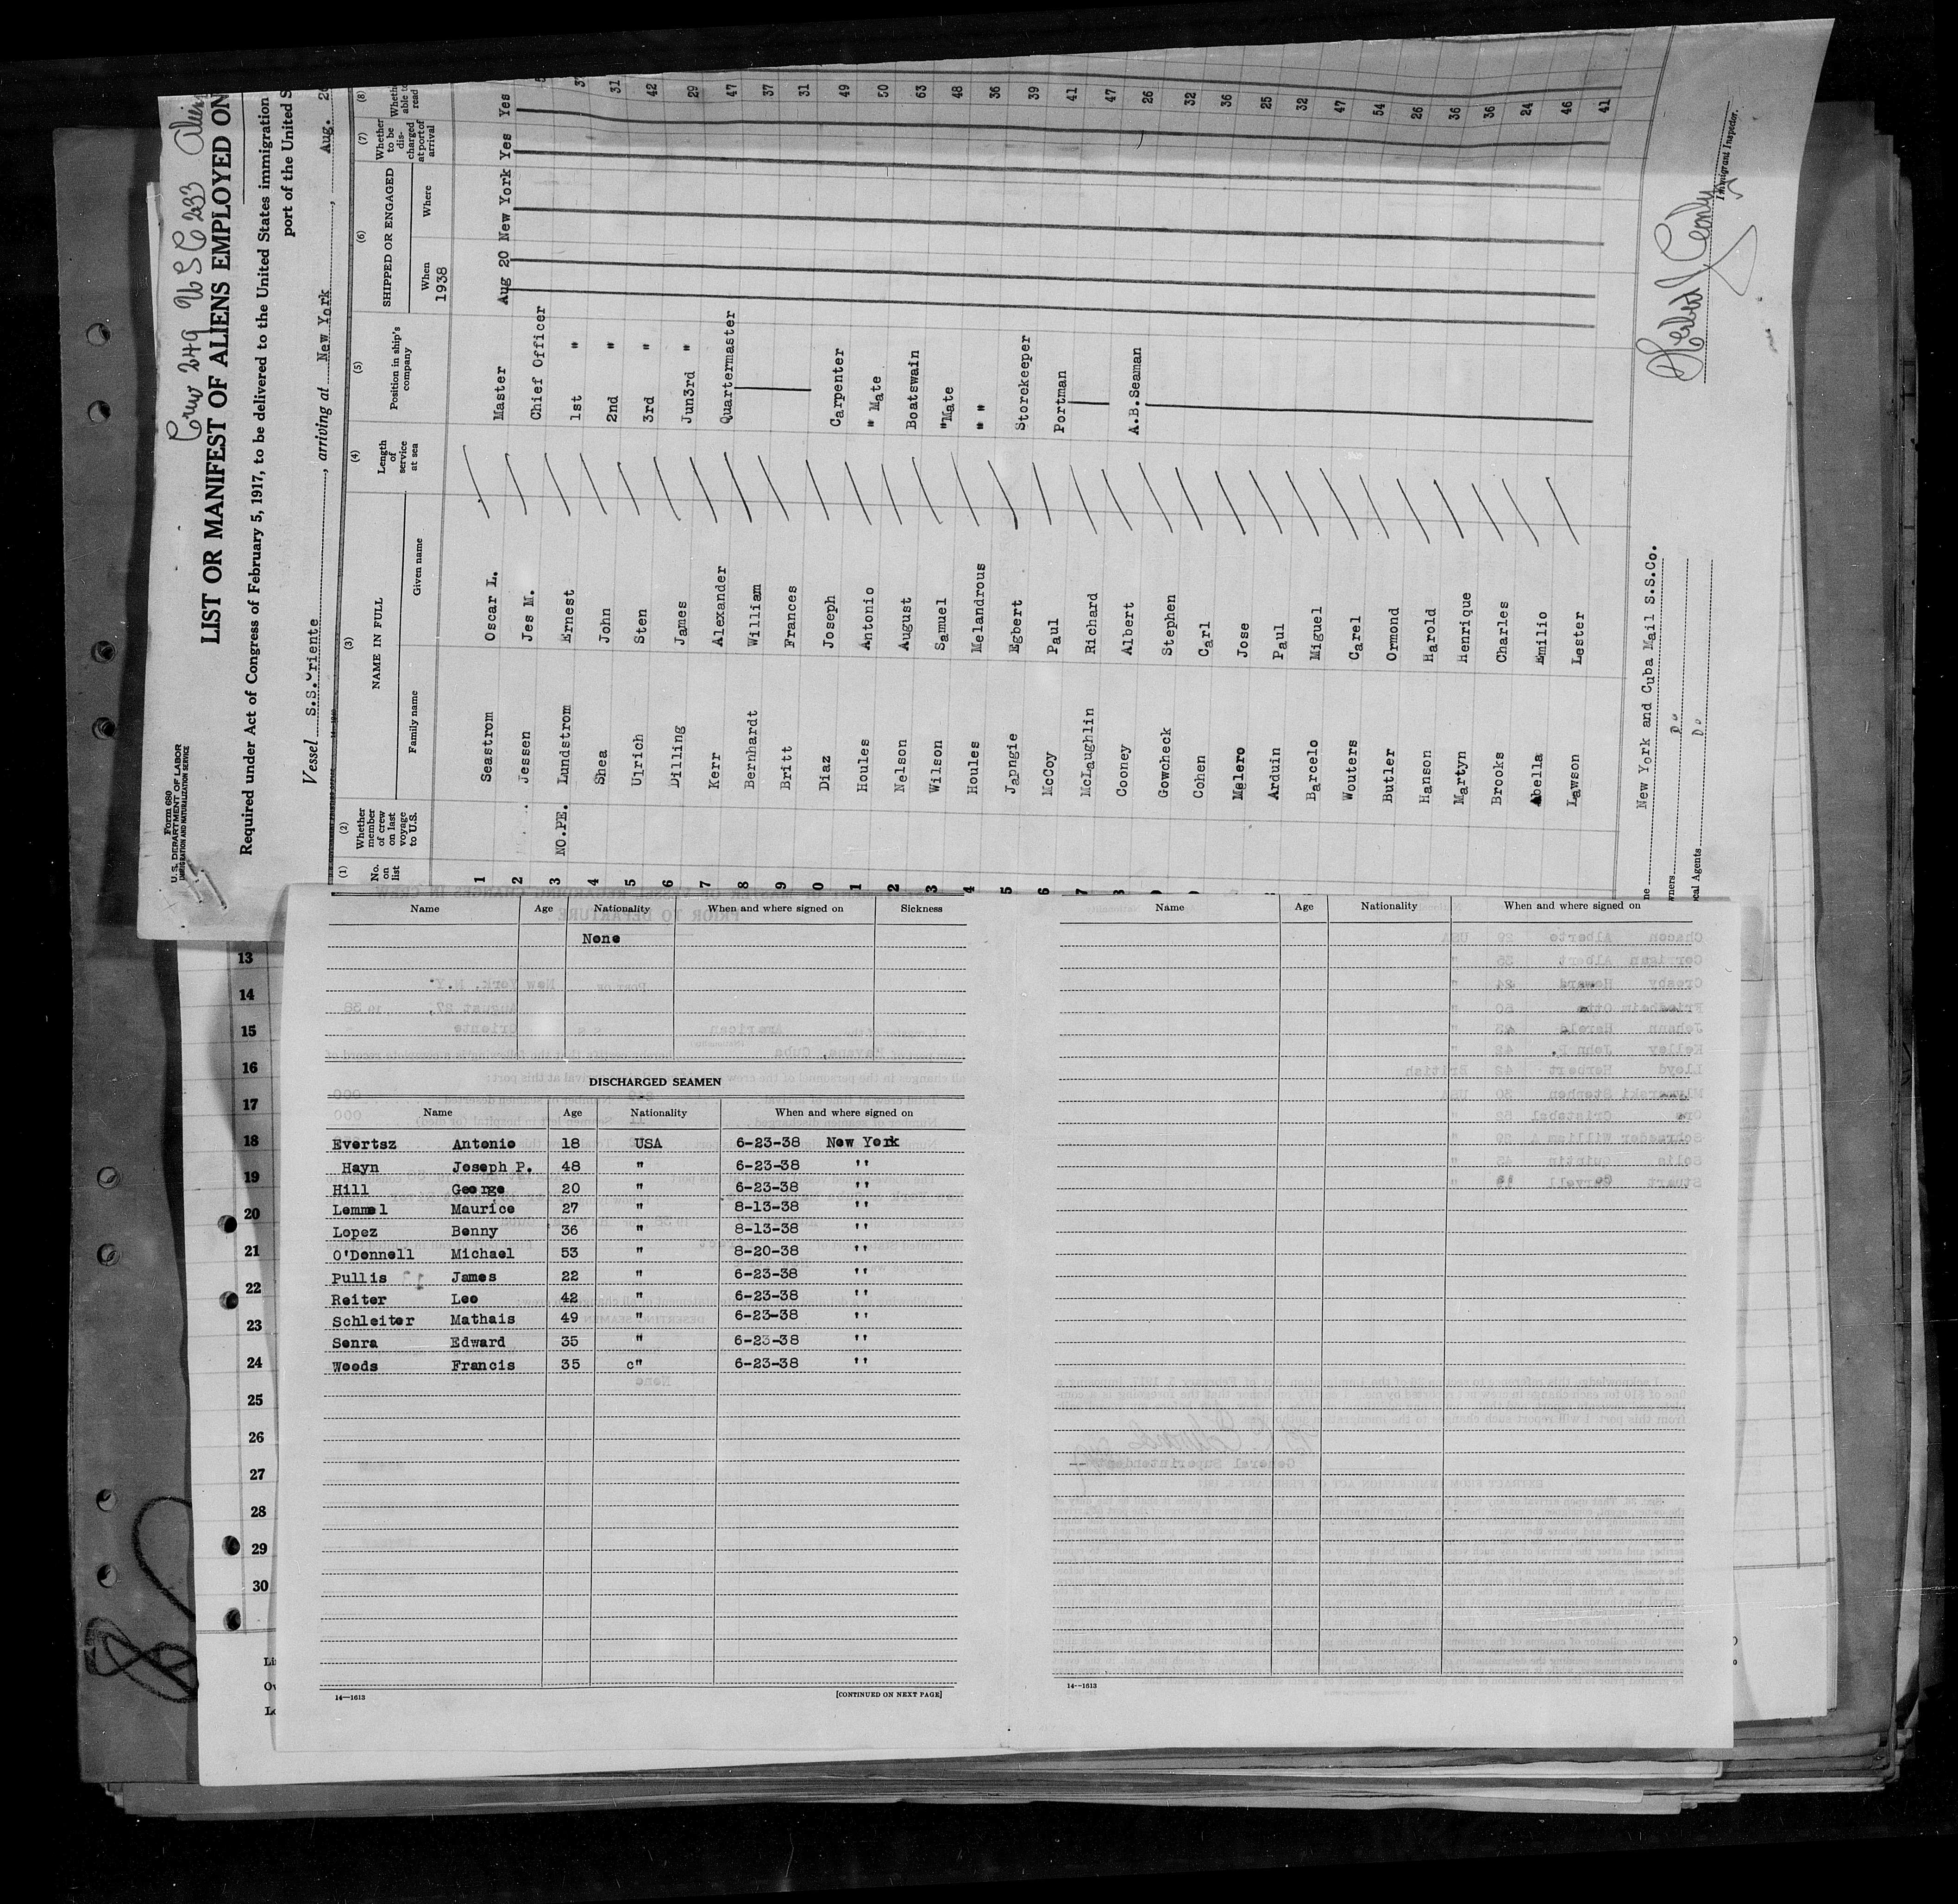 Crew 249 USC 233
Form 680
U.S. DEPARTMENT OF LABOR
IMMIGRATION AND NATURALIZATION SERVICE
LIST OR MANIFEST OF ALIENS EMPLOYED ON
Required under Act of Congress of February 5, 1917, to be delivered to the United States immigration
port of the United S
Vessel S.S. Oriente, arriving at New York, Aug. 26
(1) (2) (3) (4) (5) (6) (7) (8)
No. on list
Whether member of crew on last voyage to U.S.
NAME IN FULL
Family name Given name
Length of service at sea
Position in ship's company
SHIPPED OR ENGAGED
When Where
1938
Whether to be discharged at port of arrival
Whether able to read
1 Seastrom Oscar L. Master Aug 20 New York Yes Yes
2 Jessen Jes M. Chief Officer
3 NO.PE. Lundstrom Ernest 1st " 31
4 Shea John 2nd " 42
5 Ulrich Sten 3rd " 29
6 Dilling James Jun3rd " 47
7 Kerr Alexander Quartermaster 37
8 Bernhardt William 31
9 Britt Frances 49
0 Diaz Joseph Carpenter 50
1 Houles Antonio " Mate 63
2 Nelson August Boatswain 48
3 Wilson Samuel "Mate 36
4 Houles Melandrous " " 39
5 Jangie Egbert Storekeeper 41
6 McCoy Paul Portman 47
7 McLaughlin Richard 26
8 Cooney Albert A.B.Seaman 32
Gowcheck Stephen 36
Cohen Carl 25
Melero Jose 32
Arduin Paul 47
Barcelo Miguel 54
Wouters Carel 26
Butler Ormond 36
Hanson Harold 36
Martyn Henrique 24
Brooks Charles 46
Abella Emilio 41
Lawson Lester
New York and Cuba Mail S.S.Co.
wners Do
cal Agents Do
Immigrant Inspector.
Name Age Nationality When and where signed on Sickness
None
DISCHARGED SEAMEN
Name Age Nationality When and where signed on
Evertsz Antonio 18 USA 6-23-38 New York
Hayn Joseph P. 48 " 6-23-38 ''
Hill George 20 " 6-23-38 ''
Lemmel Maurice 27 " 8-13-38 ''
Lopez Benny 36 " 8-13-38 ''
O'Donnell Michael 53 " 8-20-38 ''
Pullis James 22 " 6-23-38 ''
Reiter Leo 42 " 6-23-38 ''
Schleiter Mathais 49 " 6-23-38 ''
Senra Edward 35 " 6-23-38 ''
Woods Francis 35 c" 6-23-38 ''
14—1613
[CONTINUED ON NEXT PAGE]
Name Age Nationality When and where signed on
14—1613
13
14
15
16
17
18
19
20
21
22
23
24
25
26
27
28
29
30